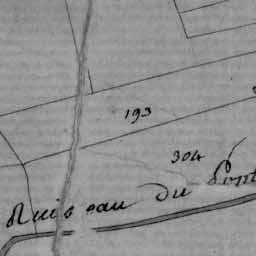 193
304
Ruisseau du Pont